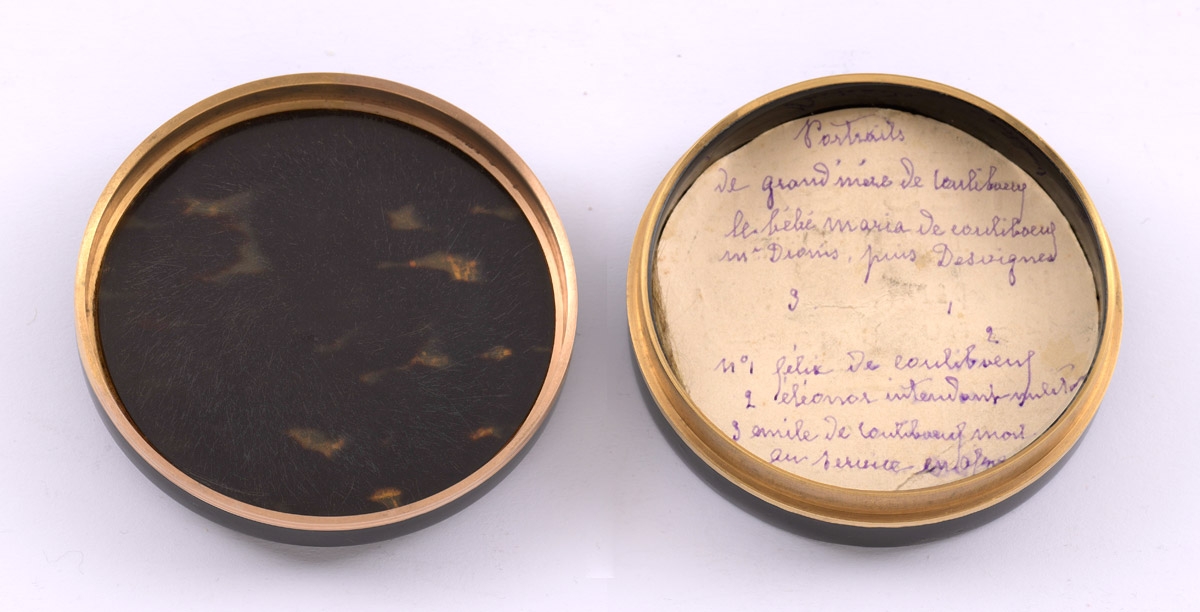 Portraits
de grand'mère de Coulibœuf
le bébé maria de coulibœuf
mme Dramis, puis Desvignes
3 1
2
n°1 félix de coulibœuf
2 éléonor intendant militaire
3 emile de Coulibœuf mort
au service en